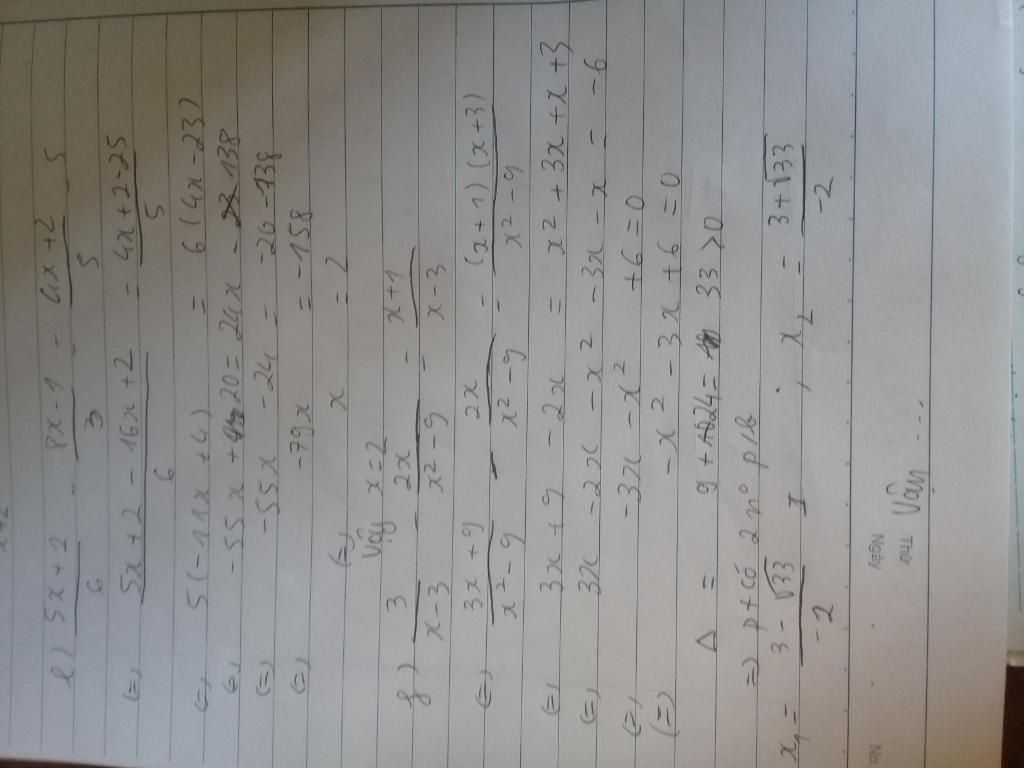 e) (5x+2)/6 - (8x-1)/3 = (4x+2)/5 - 5
(=) (5x+2-16x+2)/6 = (4x+2-25)/5
(=) 5(-11x+4) = 6(4x-23)
(=) -55x + 20 = 24x - 138
(=) -55x - 24 = -20 - 138
(=) -79x = -158
(=) x = 2
Vậy x=2
f) 3/(x-3) - 2x/(x²-9) = (x+1)/(x-3)
(=) (3x+9)/(x²-9) - 2x/(x²-9) = (x+1)(x+3)/(x²-9)
(=) 3x+9 - 2x = x²+3x+x+3
(=) 3x - 2x - x² - 3x - x = -6
(=) -3x - x² + 6 = 0
(=) -x² - 3x + 6 = 0
Δ = 9 + 24 = 33 > 0
=) pt có 2 n° p/b
x₁ = (3-√33)/-2 , x₂ = (3+√33)/-2
No.
Thứ
Ngày
Vậy ...